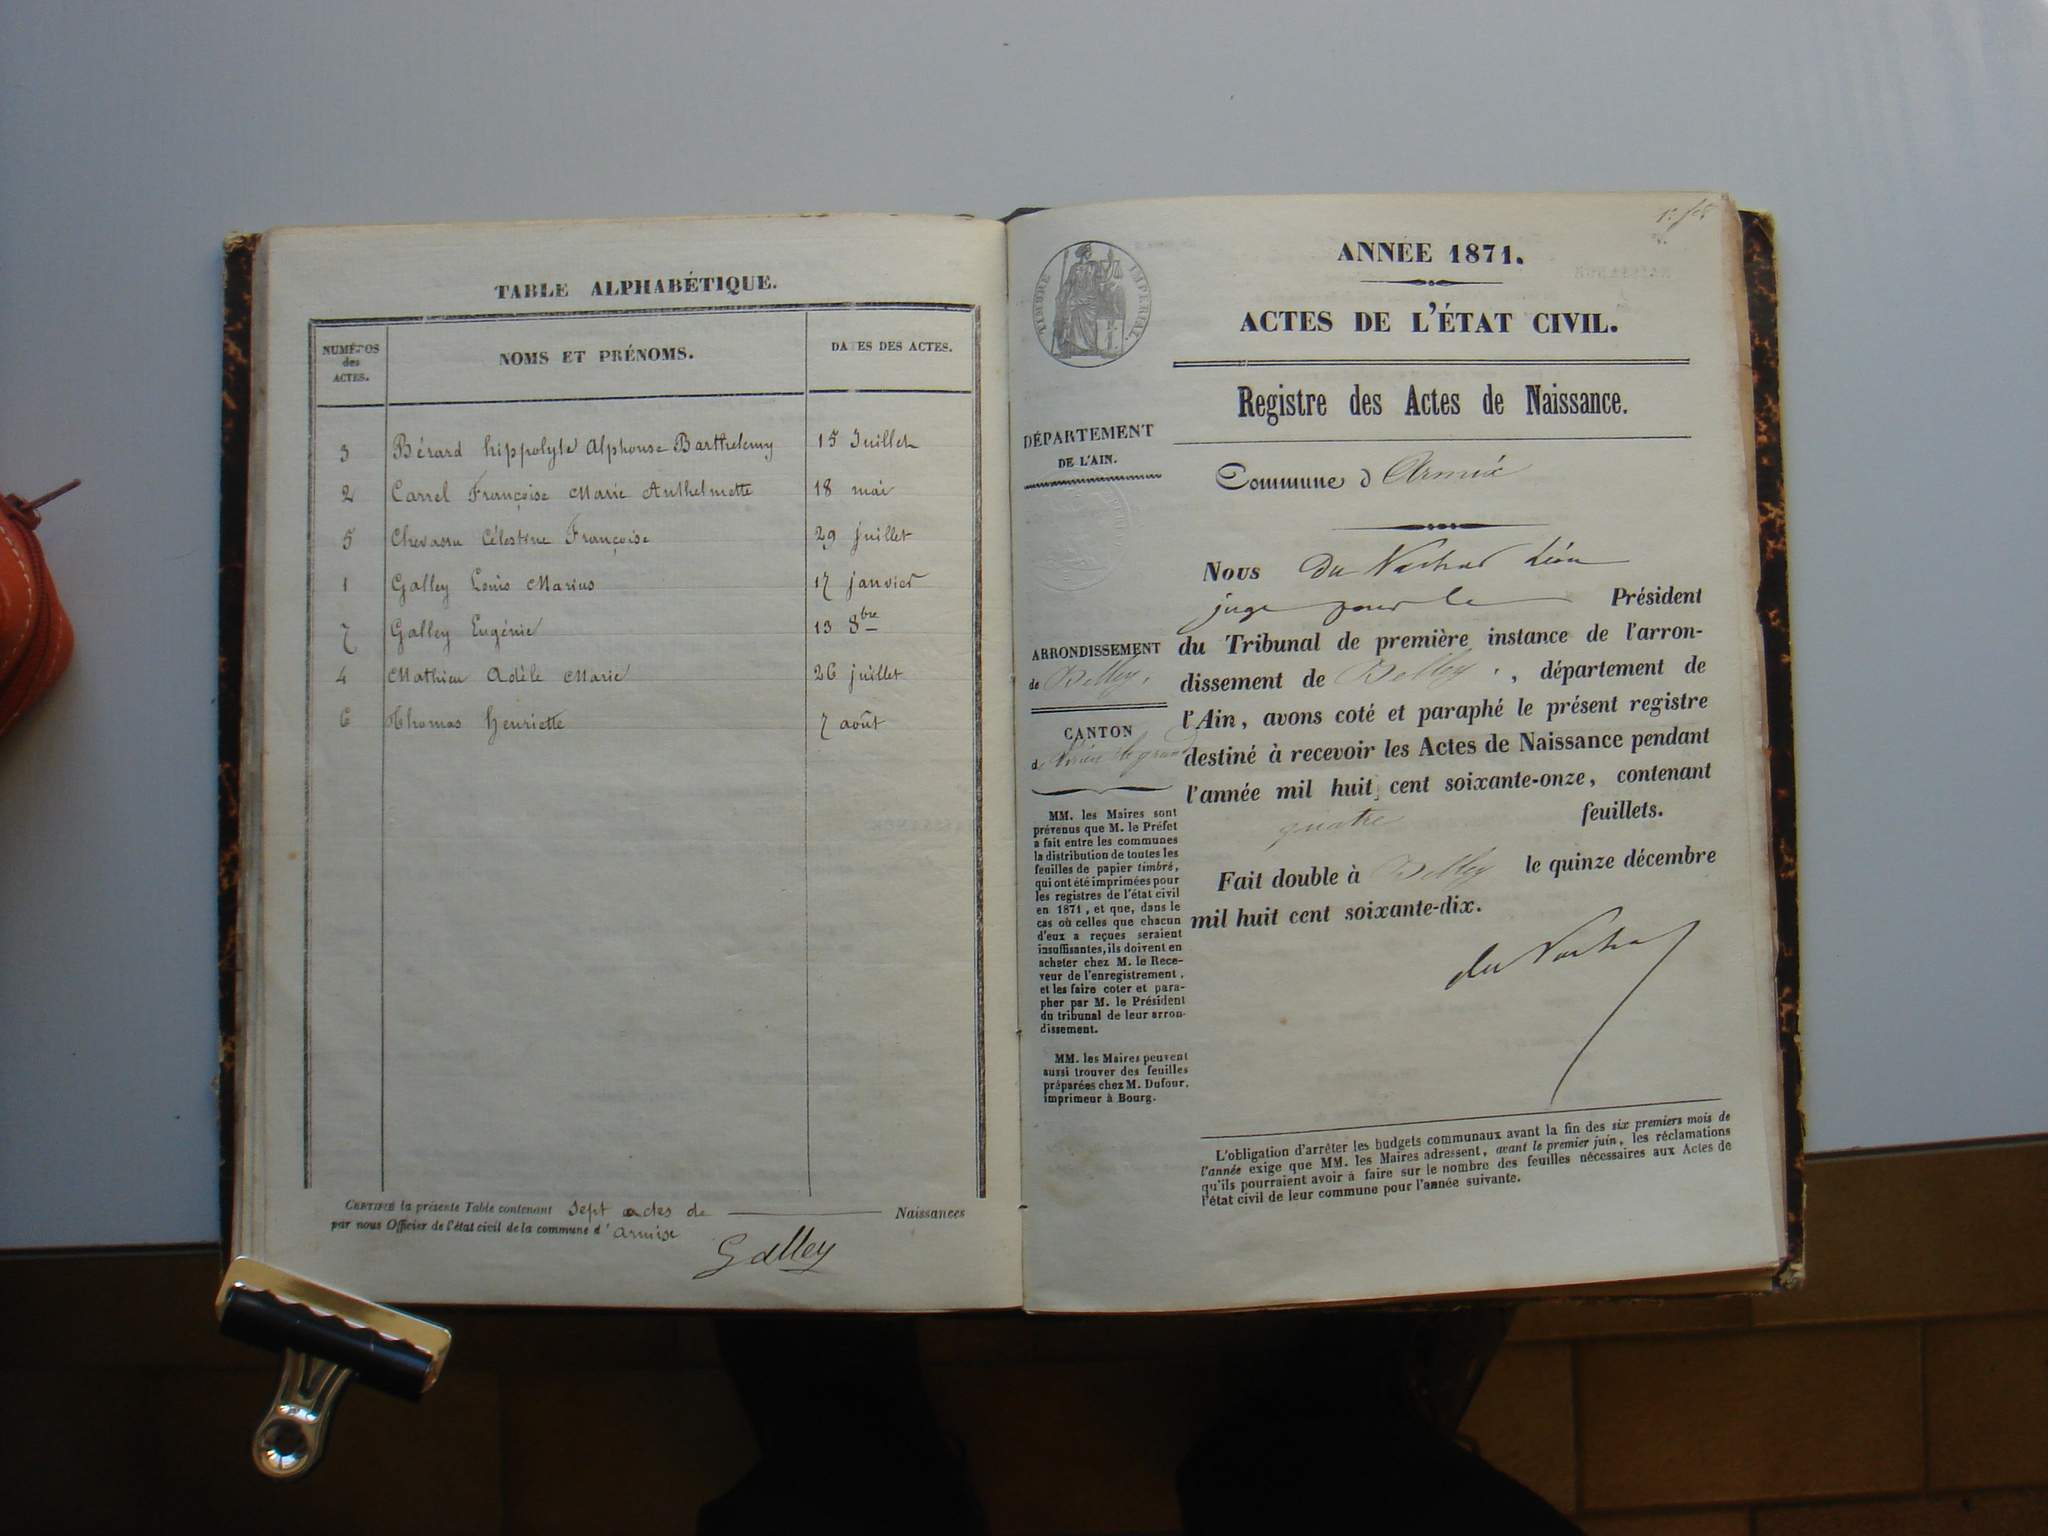 TABLE ALPHABÉTIQUE.
NUMÉROS des ACTES.
NOMS ET PRÉNOMS.
DATES DES ACTES.
3 Bérard hippolyte Alphonse Barthelemy 15 Juillet
2 Carrel Françoise Marie Anthelmette 18 mai
5 Chevassu Célestine Françoise 29 juillet
1 Galley Louis Marius 17 janvier
7 Galley Eugénie 13 8bre
4 Mathieu Adèle Marie 26 juillet
6 Thomas henriette 7 août
CERTIFIÉ la présente Table contenant Sept actes de Naissances
par nous Officier de l'état civil de la commune d' armise
Galley
TIMBRE IMPÉRIAL.
DÉPARTEMENT
DE L'AIN.
ARRONDISSEMENT
de Belley,
CANTON
d
MM. les Maires sont
prévenus que M. le Préfet
a fait entre les communes
la distribution de toutes les
feuilles de papier timbré,
qui ont été imprimées pour
les registres de l'état civil
en 1871, et que, dans le
cas où celles que chacun
d'eux a reçues seraient
insuffisantes, ils doivent en
acheter chez M. le Rece-
veur de l'enregistrement,
et les faire coter et para-
pher par M. le Président
du tribunal de leur arron-
dissement.
MM. les Maires peuvent
aussi trouver des feuilles
préparées chez M. Dufour,
imprimeur à Bourg.
ANNÉE 1871.
ACTES DE L'ÉTAT CIVIL.
Registre des Actes de Naissance.
Commune d Armix
Nous du Léon
juge pour le Président
du Tribunal de première instance de l'arron-
dissement de Belley, département de
l'Ain, avons coté et paraphé le présent registre
destiné à recevoir les Actes de Naissance pendant
l'année mil huit cent soixante-onze, contenant
quatre feuillets.
Fait double à Belley le quinze décembre
mil huit cent soixante-dix.
L'obligation d'arrêter les budgets communaux avant la fin des six premiers mois de
l'année exige que MM. les Maires adressent, avant le premier juin, les réclamations
qu'ils pourraient avoir à faire sur le nombre des feuilles nécessaires aux Actes de
l'état civil de leur commune pour l'année suivante.